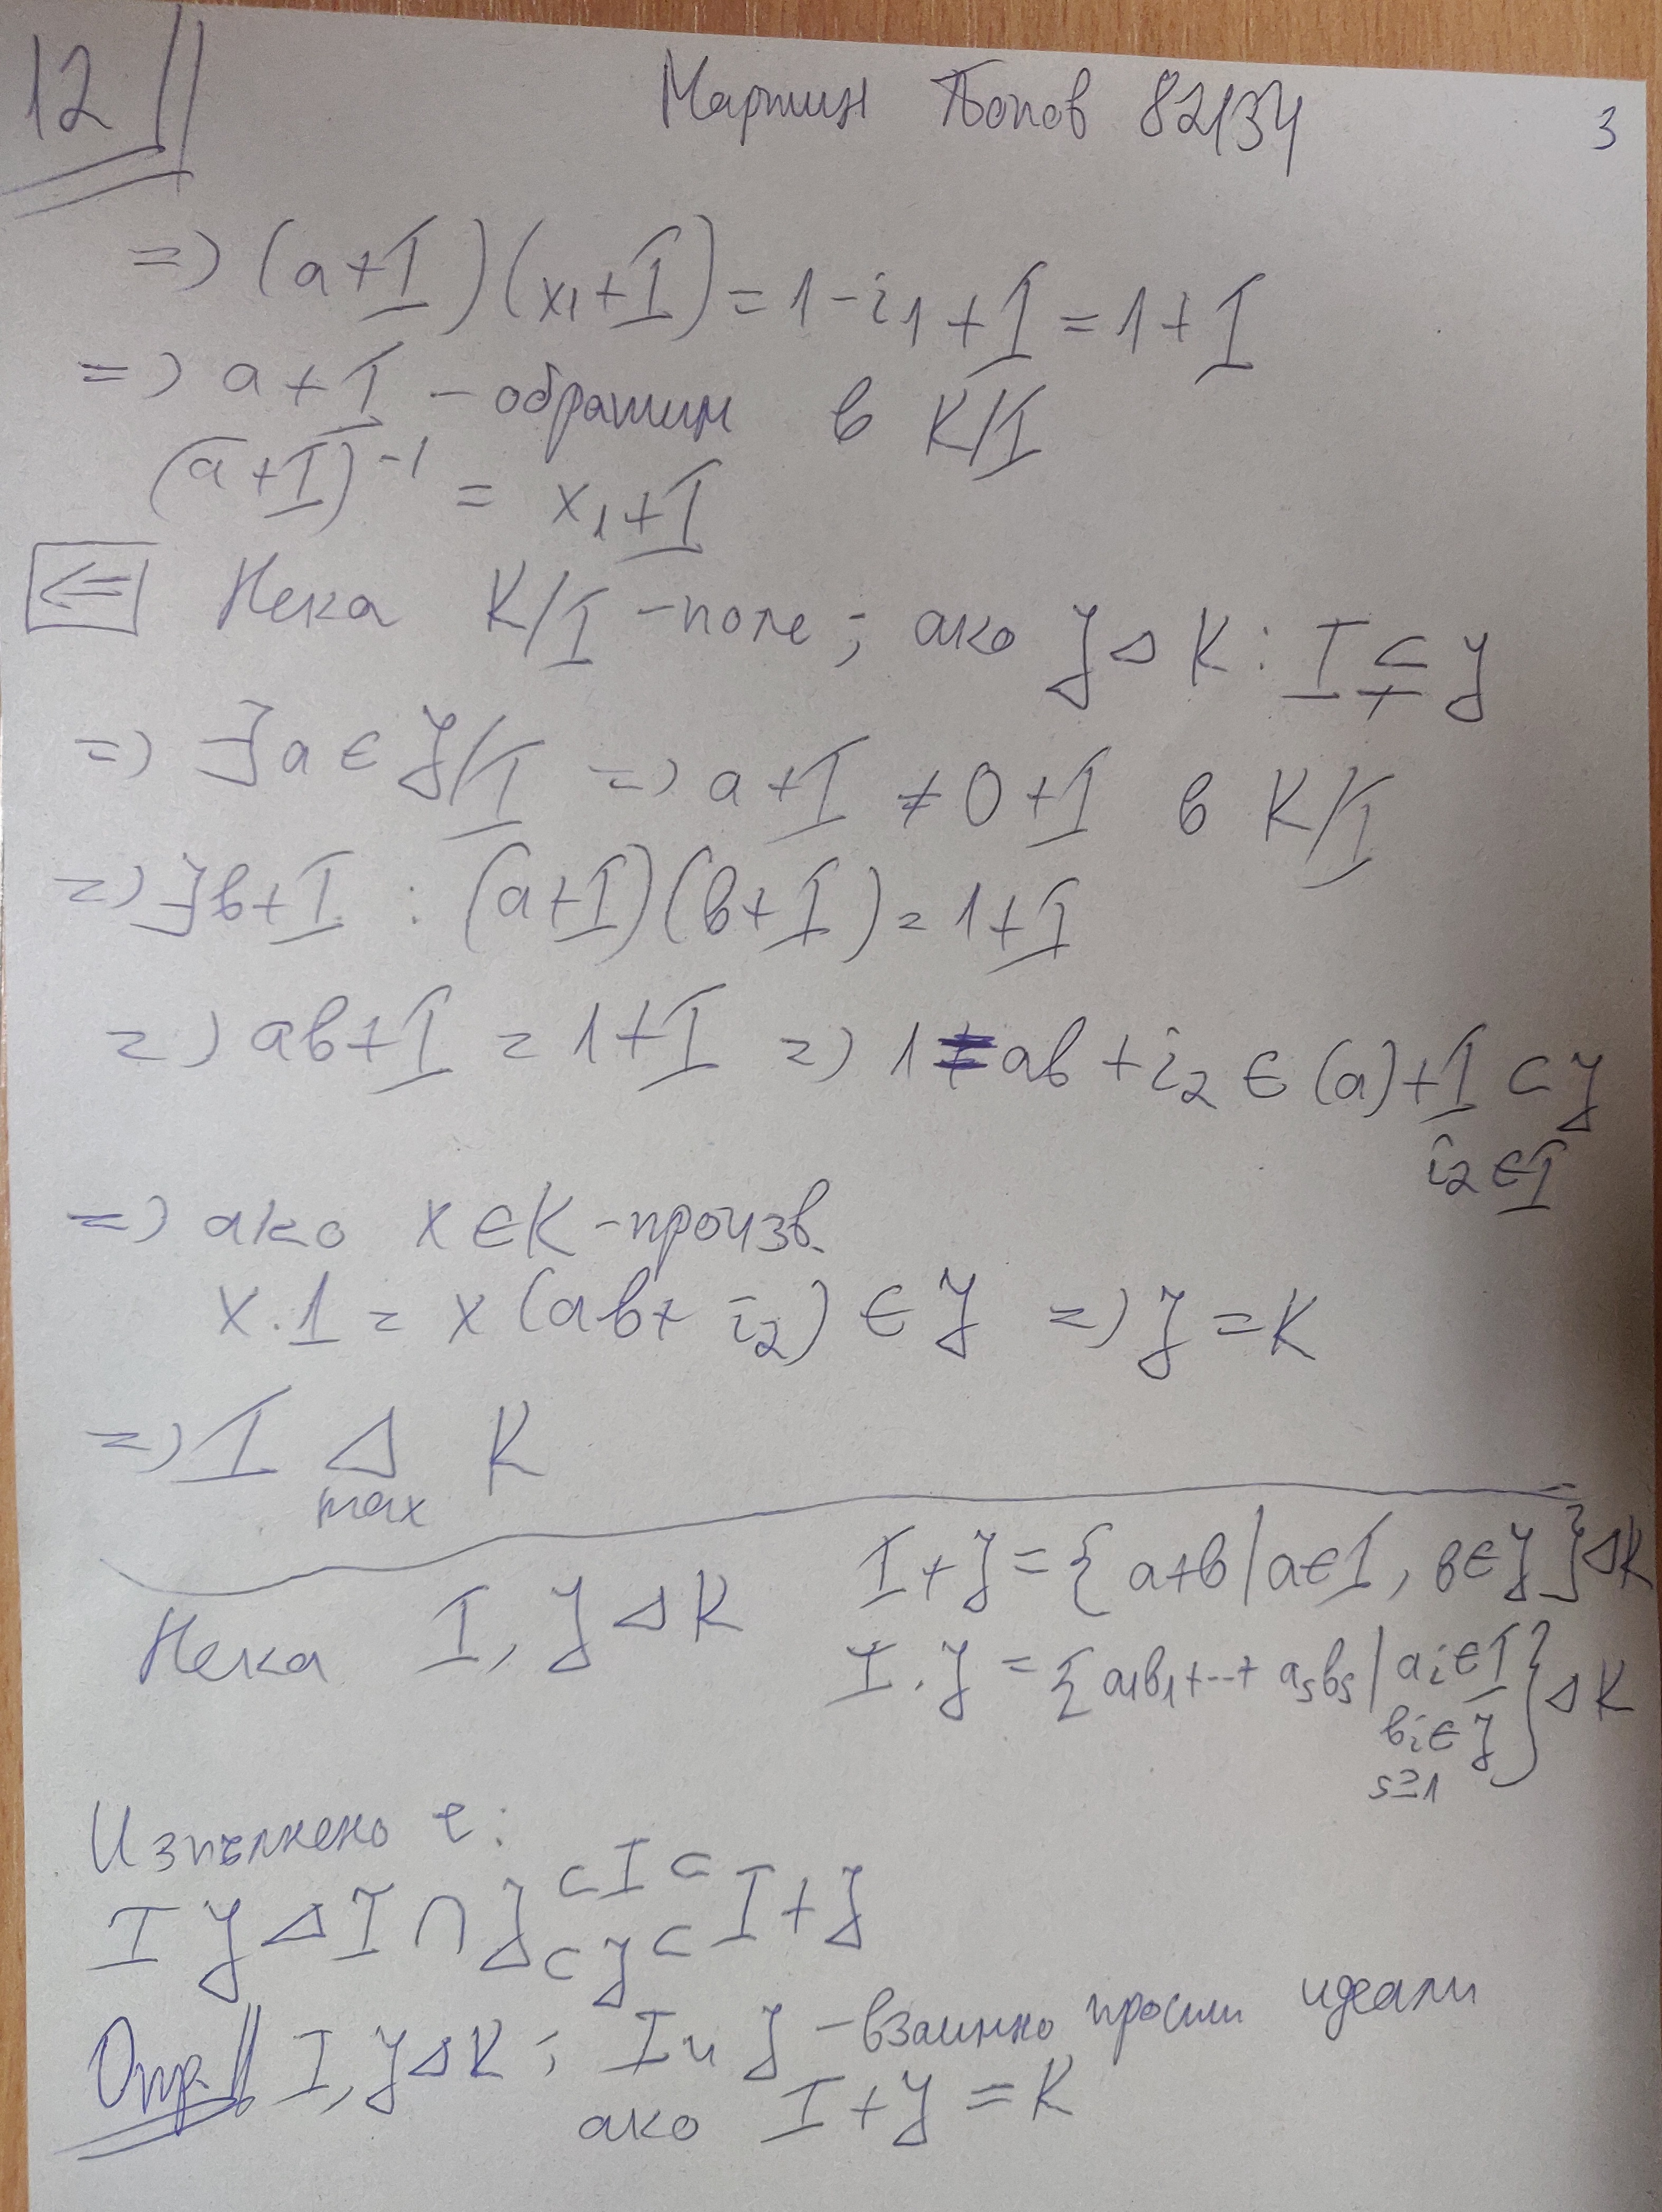 12 ||
Мартин Попов 82134 3
=> (a+I)(x₁+I) = 1-i₁+I = 1+I
=> a+I - обратим в K/I
(a+I)⁻¹ = x₁+I
<= Нека K/I - поле; ако J Δ K : I ⊊ J
=> ∃a ∈ J/I => a+I ≠ 0+I в K/I
=> ∃в+I : (a+I)(в+I) = 1+I
=> aв+I = 1+I => 1 = aв+i₂ ∈ (a)+I ⊂ J
i₂ ∈ I
=> ако x ∈ K - произв.
x.1 = x(aв+i₂) ∈ J => J = K
=> I Δ K
max
Нека I, J Δ K
I+J = {a+в | a∈I, в∈J} Δ K
I.J = {a₁в₁+...+ aₛвₛ | aᵢ∈I
вᵢ∈J } Δ K
s≥1
Изпълнено е:
I J Δ I ∩ J ⊂ I ⊂ I+J
⊂ J ⊂
Опр.|| I, J Δ K ; I и J - взаимно прости идеали
ако I+J = K